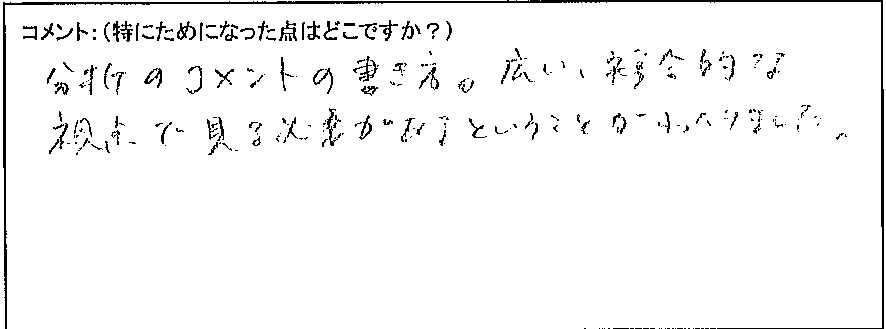 コメント:(特にためになった点はどこですか?)
分析のコメントの書き方。広い、複合的な
視点で見る必要があるということがわかりました。